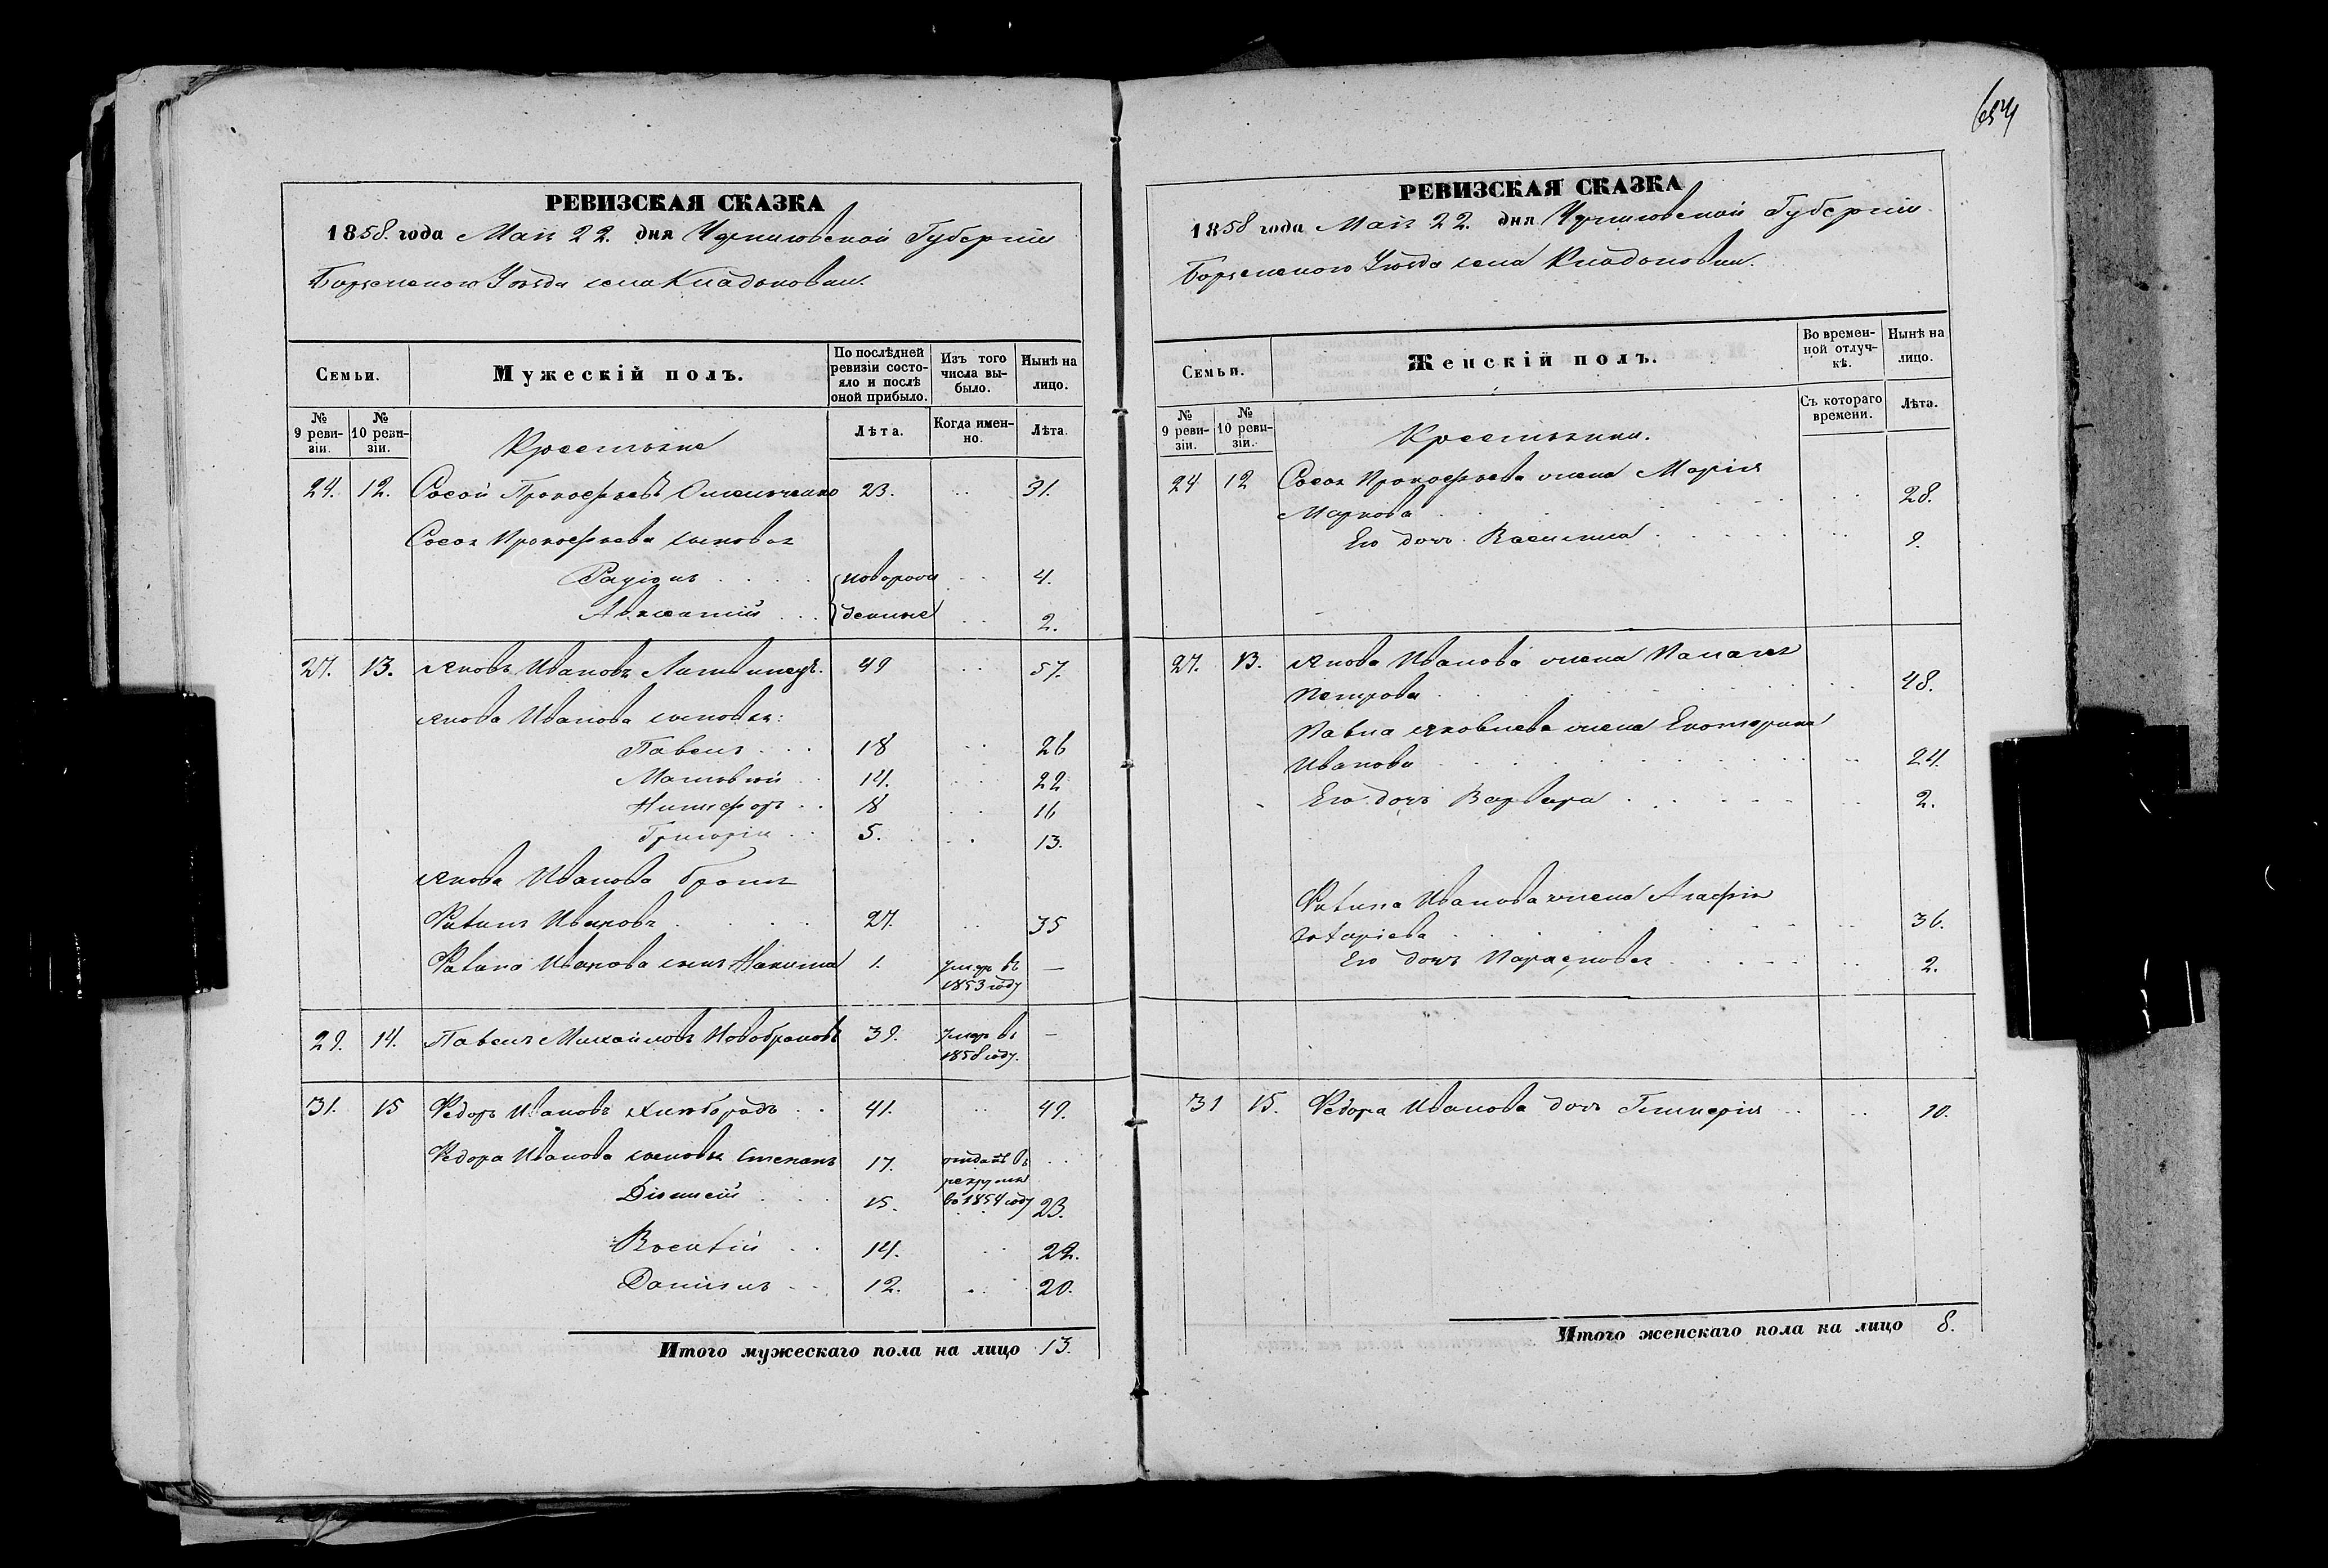 654
РЕВИЗСКАЯ СКАЗКА
1858. года Маія 22. дня Черниговской Губерніи
Борзенскаго Уѣзда села Кладьковки.
Семьи.
Мужескій полъ.
По послѣдней ревизіи состояло и послѣ оной прибыло.
Изъ того числа выбыло.
Нынѣ на лицо.
№ 9 ревизіи.
№ 10 ревизіи.
Крестьяне
Лѣта.
Когда именно.
Лѣта.
24. 12. Сосой Прокофьевъ Омельченко 23. .. 31.
Сосоя Прокофьева сыновья
новорож 4.
денные 2.
27. 13. Яковъ Ивановъ Литвинецъ. 49 .. 57.
Якова Иванова сыновья:
Павелъ 18 .. 26
Матвѣй 14. .. 22
Никифоръ 18 .. 16
Григорій 5. .. 13.
Якова Иванова братъ
Ивановъ 27. .. 35
Иванова сынъ Никита 1. умеръ въ —
1853 году
29. 14. Павелъ Михайловъ 39. умеръ въ —
1858 году.
31. 15 Ѳедоръ Ивановъ 41. .. 49.
Ѳедора Иванова сыновья Степанъ 17. отданъ въ ..
рекруты
въ 1854 году
Діонисій 15. 23.
14. .. 22.
Даніилъ 12. .. 20.
Итого мужескаго пола на лицо 13.
РЕВИЗСКАЯ СКАЗКА
1858 года Маія 22. дня Черниговской Губерніи
Борзенскаго Уѣзда села Кладьковки.
Семьи.
Женскій полъ.
Во временной отлучкѣ.
Нынѣ на лицо.
№ 9 ревизіи.
№ 10 ревизіи.
Крестьянки.
Съ котораго времени.
Лѣта.
24 12 Сосоя Прокофьева жена Марія
Маркова .. 28.
Его дочь Василиса .. 9.
27. 13. Якова Иванова жена Палагея
Петрова .. 48.
Павла Яковлева жена Екатерина
Иванова .. 24.
Его дочь Варвара .. 2.
Иванова жена Агафія
.. 36.
Его дочь Парасковья .. 2.
31 15. Ѳедора Иванова дочь Гликерія .. 10.
Итого женскаго пола на лицо 8.